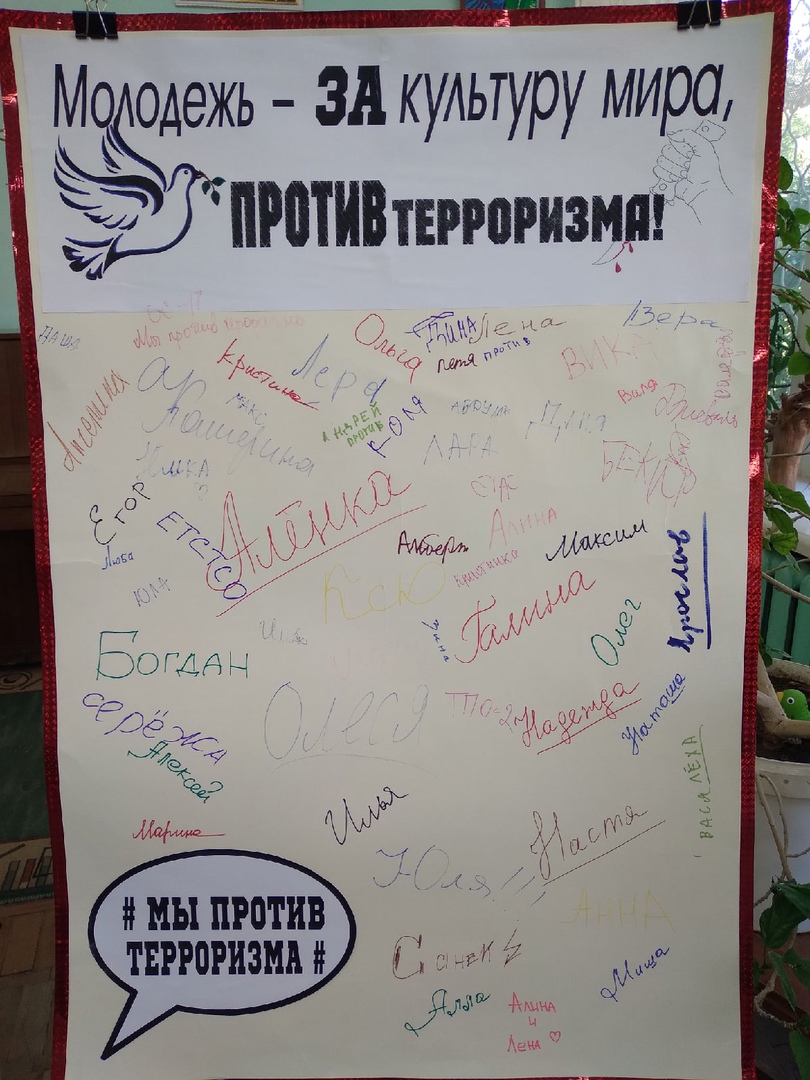 Молодежь – ЗА культуру мира,
ПРОТИВ ТЕРРОРИЗМА!
Даша
Мы против
Ольга
Дина
Лена
Вера
Петя против
Кристина
Лера
ВИКА
Ангелина
Макс
Катерина
АНДРЕЙ
ПРОТИВ
КОЛЯ
ЛАРА
Виля
БЕКИР
Егор
Алёнка
Стас
Алина
Альберт
Максим
Кристинка
Люба
ЕТСТСО
Юля
Ксю
Галина
Зина
Олег
Ярослав
Богдан
Серёжа
Алексей
Олеся
Надежда
Наташа
ВАСЯ ЛЁХА
Марина
Илья
Настя
Юля
АННА
# МЫ ПРОТИВ
ТЕРРОРИЗМА #
Санек
Миша
Алла
Алина
и
Лена